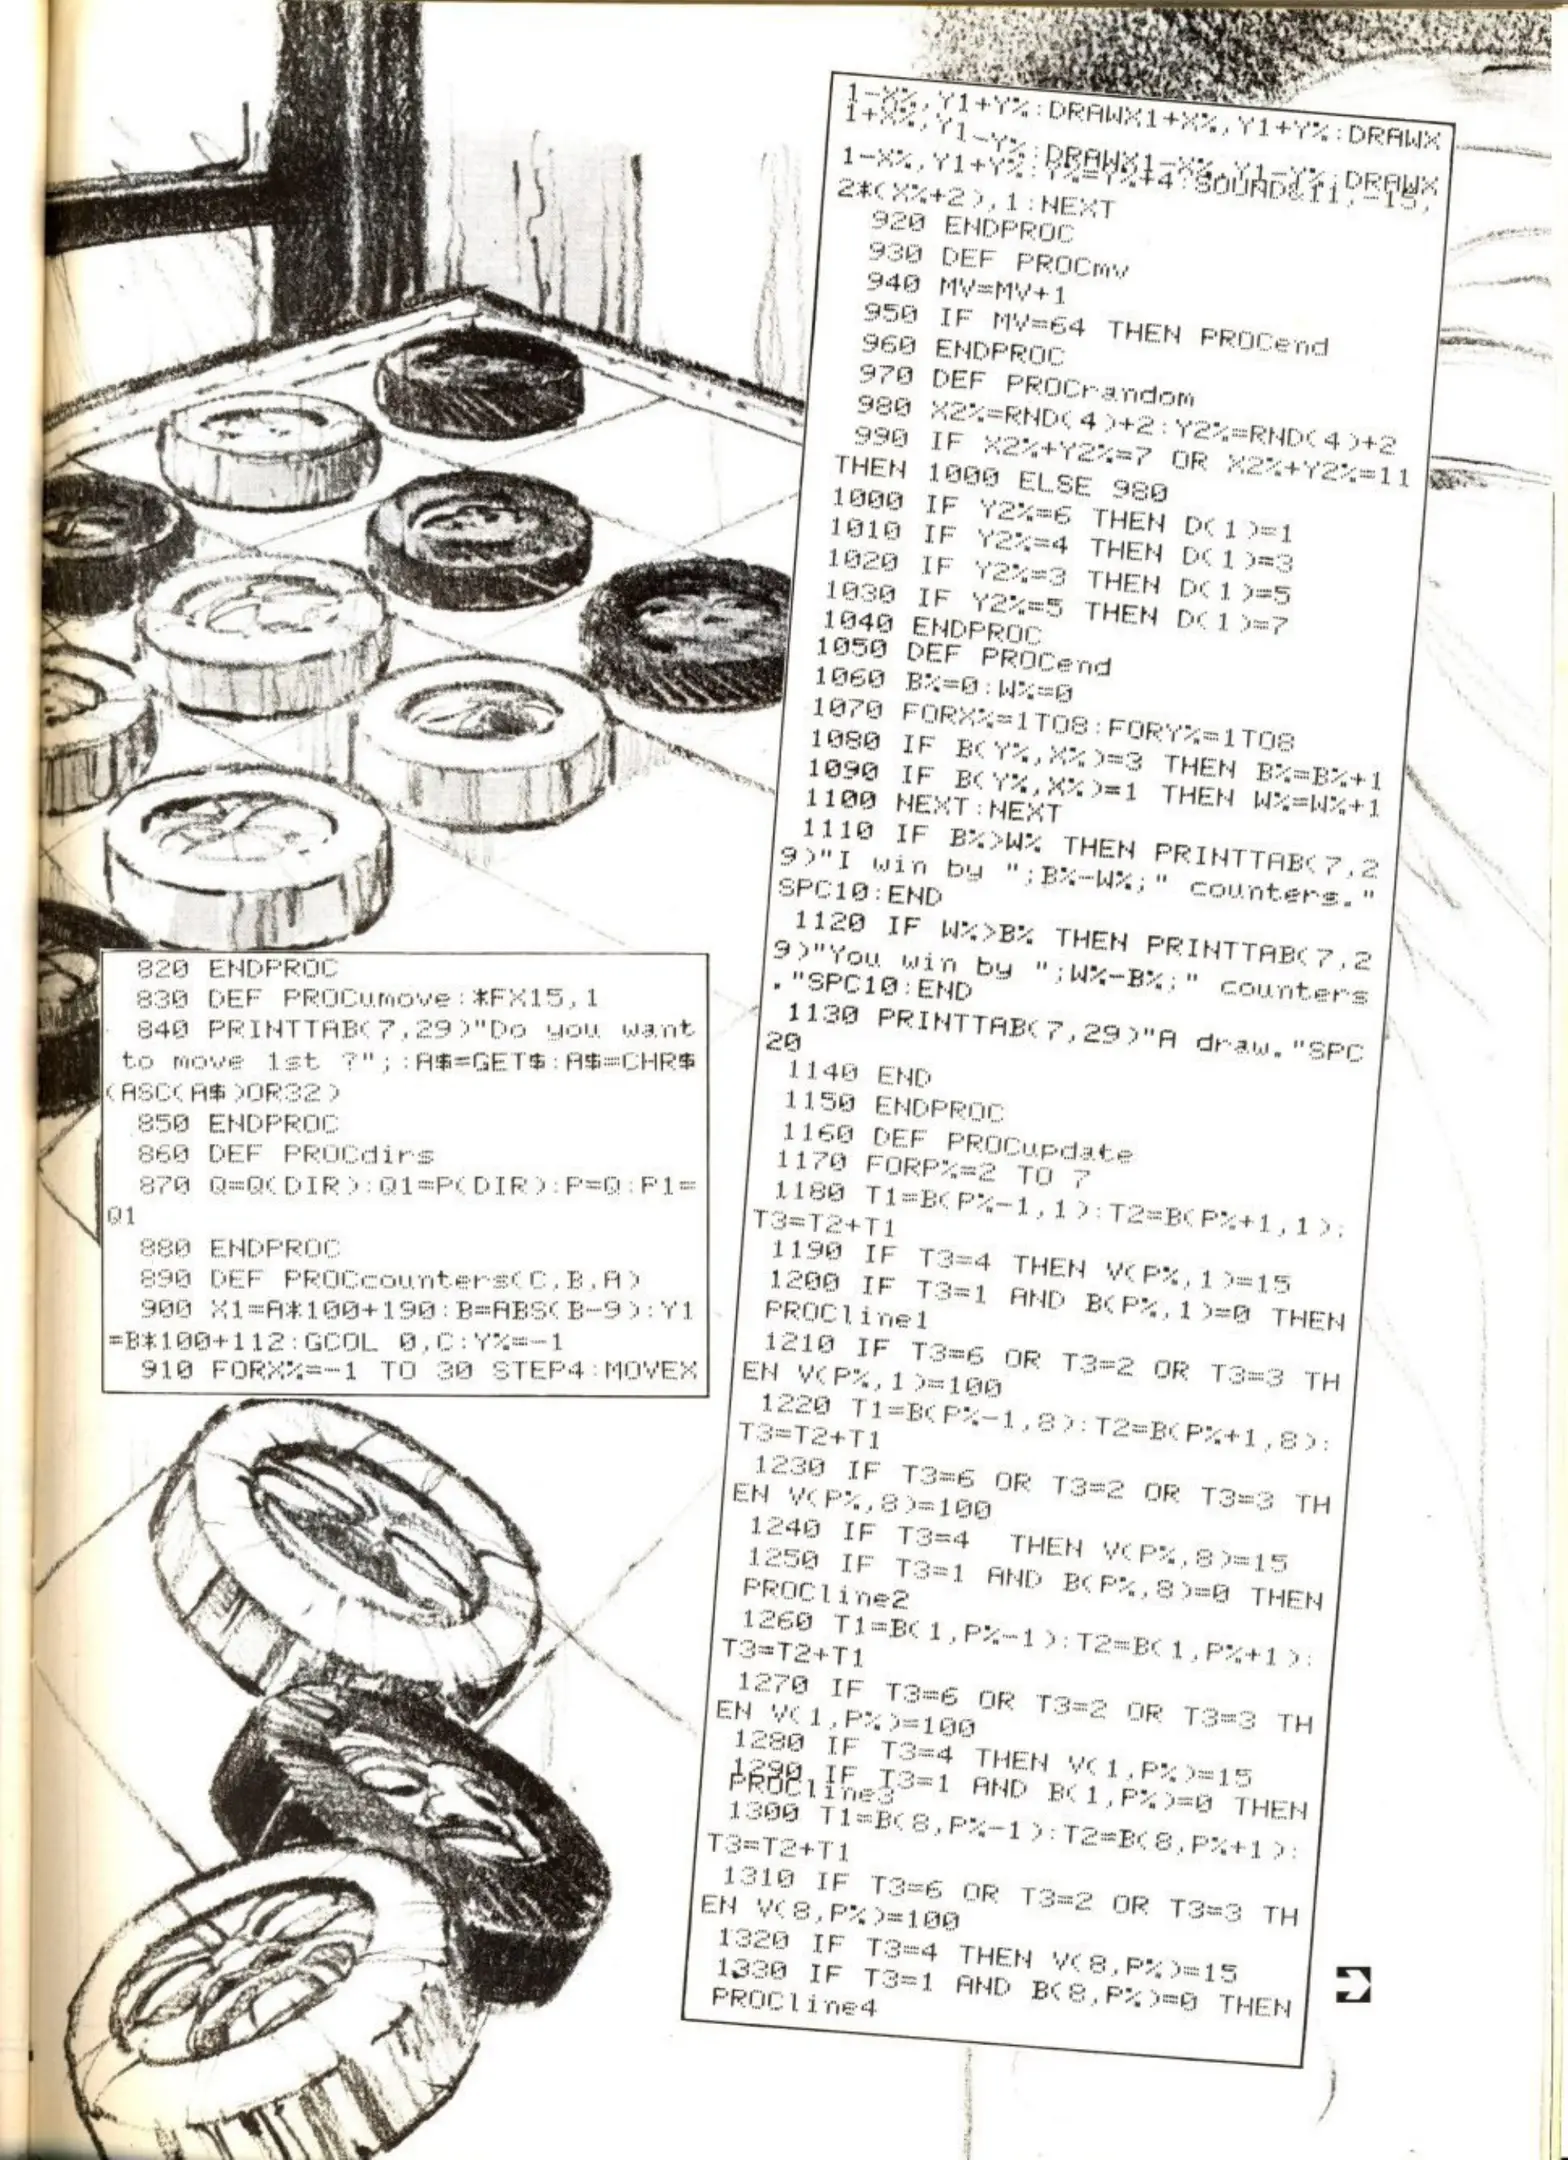 820 ENDPROC
830 DEF PROCumove:*FX15,1
840 PRINTTAB(7,29)"Do you want
to move 1st ?";:A$=GET$:A$=CHR$
(ASC(A$)OR32)
850 ENDPROC
860 DEF PROCdirs
870 Q=Q(DIR):Q1=P(DIR):P=Q:P1=
Q1
880 ENDPROC
890 DEF PROCcounters(C,B,A)
900 X1=A*100+190:B=ABS(B-9):Y1
=B*100+112:GCOL 0,C:Y%=-1
910 FORX%=-1 TO 30 STEP4:MOVEX
1-X%,Y1+Y%:DRAWX1+X%,Y1+Y%:DRAWX
1+X%,Y1-Y%:DRAWX1-X%,Y1-Y%:DRAWX
1-X%,Y1+Y%:Y%=Y%+4:SOUND&11,-15,
2*(X%+2),1:NEXT
920 ENDPROC
930 DEF PROCmv
940 MV=MV+1
950 IF MV=64 THEN PROCend
960 ENDPROC
970 DEF PROCrandom
980 X2%=RND(4)+2:Y2%=RND(4)+2
990 IF X2%+Y2%=7 OR X2%+Y2%=11
THEN 1000 ELSE 980
1000 IF Y2%=6 THEN D(1)=1
1010 IF Y2%=4 THEN D(1)=3
1020 IF Y2%=3 THEN D(1)=5
1030 IF Y2%=5 THEN D(1)=7
1040 ENDPROC
1050 DEF PROCend
1060 B%=0:W%=0
1070 FORX%=1TO8:FORY%=1TO8
1080 IF B(Y%,X%)=3 THEN B%=B%+1
1090 IF B(Y%,X%)=1 THEN W%=W%+1
1100 NEXT:NEXT
1110 IF B%>W% THEN PRINTTAB(7,2
9)"I win by ";B%-W%;" counters."
SPC10:END
1120 IF W%>B% THEN PRINTTAB(7,2
9)"You win by ";W%-B%;" counters
."SPC10:END
1130 PRINTTAB(7,29)"A draw."SPC
20
1140 END
1150 ENDPROC
1160 DEF PROCupdate
1170 FORP%=2 TO 7
1180 T1=B(P%-1,1):T2=B(P%+1,1):
T3=T2+T1
1190 IF T3=4 THEN V(P%,1)=15
1200 IF T3=1 AND B(P%,1)=0 THEN
PROCline1
1210 IF T3=6 OR T3=2 OR T3=3 TH
EN V(P%,1)=100
1220 T1=B(P%-1,8):T2=B(P%+1,8):
T3=T2+T1
1230 IF T3=6 OR T3=2 OR T3=3 TH
EN V(P%,8)=100
1240 IF T3=4  THEN V(P%,8)=15
1250 IF T3=1 AND B(P%,8)=0 THEN
PROCline2
1260 T1=B(1,P%-1):T2=B(1,P%+1):
T3=T2+T1
1270 IF T3=6 OR T3=2 OR T3=3 TH
EN V(1,P%)=100
1280 IF T3=4 THEN V(1,P%)=15
1290 IF T3=1 AND B(1,P%)=0 THEN
PROCline3
1300 T1=B(8,P%-1):T2=B(8,P%+1):
T3=T2+T1
1310 IF T3=6 OR T3=2 OR T3=3 TH
EN V(8,P%)=100
1320 IF T3=4 THEN V(8,P%)=15
1330 IF T3=1 AND B(8,P%)=0 THEN
PROCline4